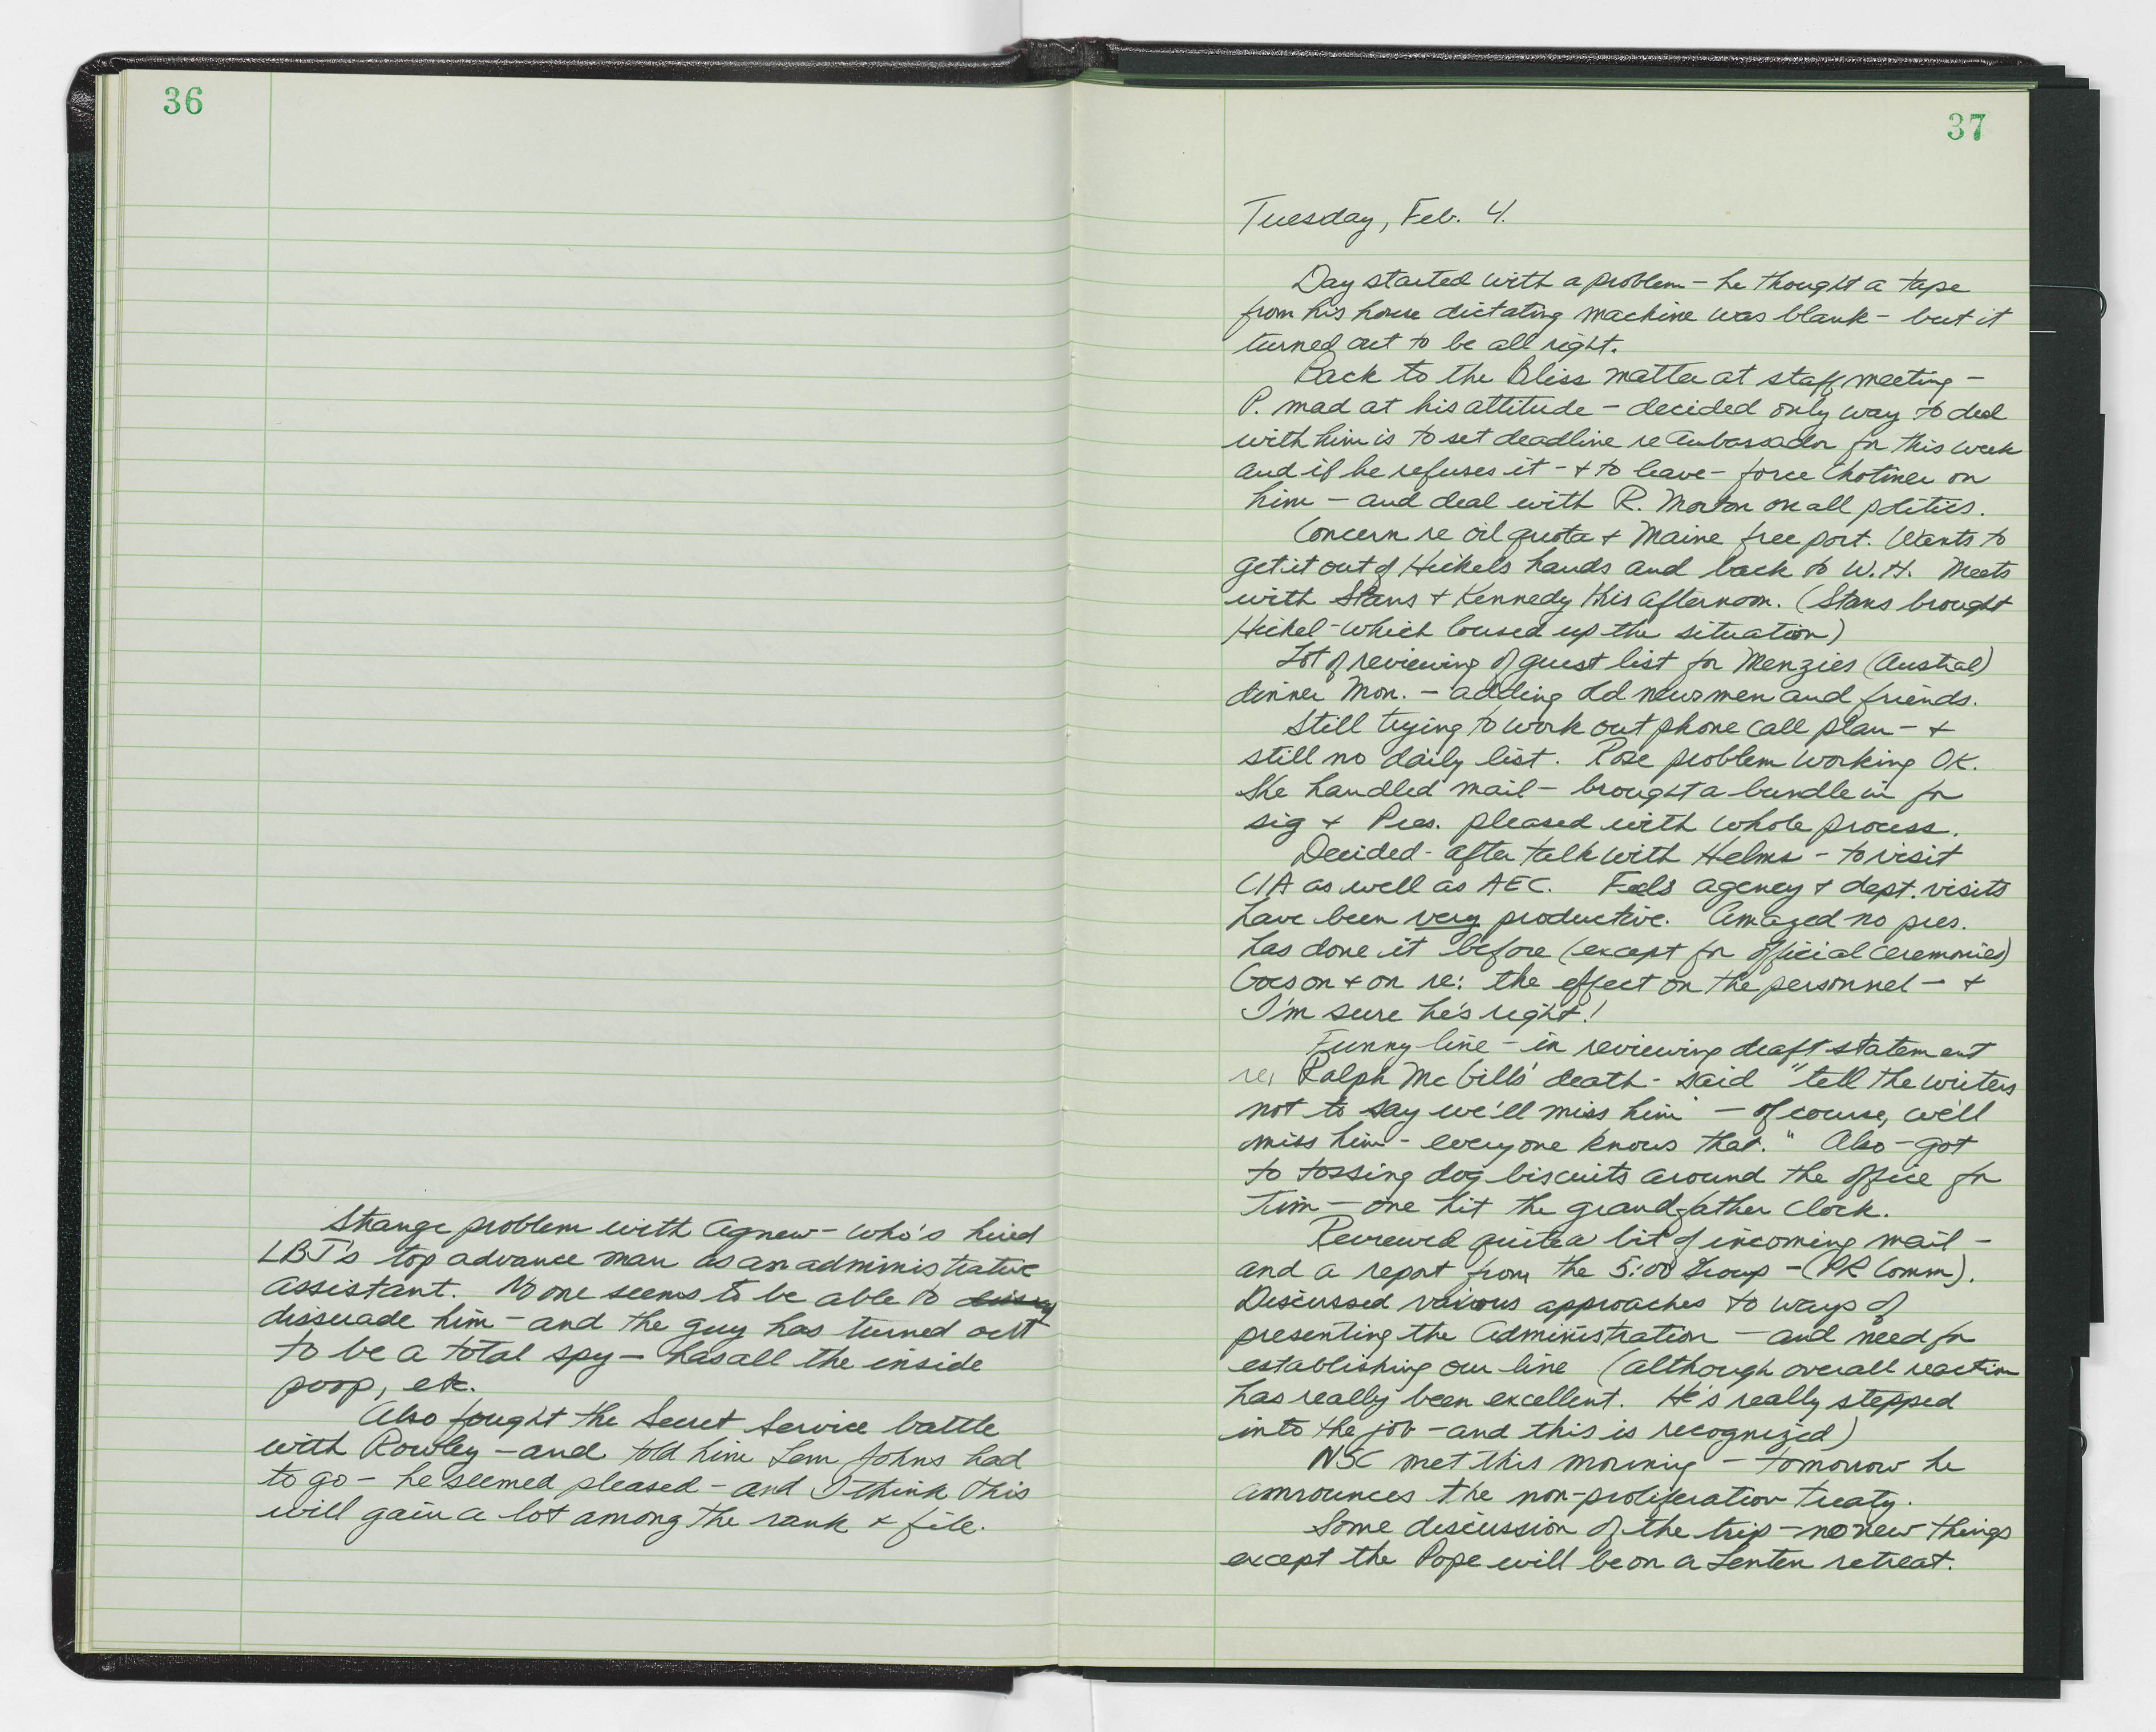 36
Strange problem with Agnew - who's hired
LBJ's top advance man as an administrative
assistant. No one seems to be able to
dissuade him - and the guy has turned out
to be a total spy - has all the inside
poop, etc.
Also fought the Secret Service battle
with Rowley - and told him Lem Johns had
to go - he seemed pleased - and I think this
will gain a lot among the rank & file.
37
Tuesday, Feb. 4.
Day started with a problem - he thought a tape
from his house dictating machine was blank - but it
turned out to be all right.
Back to the Bliss matter at staff meeting -
P. mad at his attitude - decided only way to deal
with him is to set deadline re Ambassador for this week
and if he refuses it - & to leave - force Chotiner on
him - and deal with R. Morton on all politics.
Concern re oil quota & Maine free port. Wants to
get it out of Hickels hands and back to W.H. Meets
with Stans & Kennedy this afternoon. (Stans brought
Hickel - which loused up the situation)
Lot of reviewing of guest list for Menzies (Austral)
dinner Mon. - adding old newsmen and friends.
Still trying to work out phone call plan - &
still no daily list. Rose problem working OK.
She handled mail - brought a bundle in for
sig & Pres. pleased with whole process.
Decided - after talk with Helms - to visit
CIA as well as AEC. Feels agency & dept. visits
have been very productive. Amazed no pres.
has done it before (except for official ceremonies)
Goes on & on re: the effect on the personnel - &
I'm sure he's right!
Funny line - in reviewing draft statement
re, Ralph McGills' death - said "tell the writers
not to say we'll miss him - of course, we'll
miss him - everyone knows that." Also - got
to tossing dog biscuits around the office for
Tim - one hit the grandfather clock.
Reviewed quite a bit of incoming mail -
and a report from the 5:00 Group - (PR Comm).
Discussed various approaches to ways of
presenting the Administration - and need for
establishing our line (although overall reaction
has really been excellent. He's really stepped
into the job - and this is recognized)
NSC met this morning - tomorrow he
announces the non-proliferation treaty.
Some discussion of the trip - no new things
except the Pope will be on a Lenten retreat.